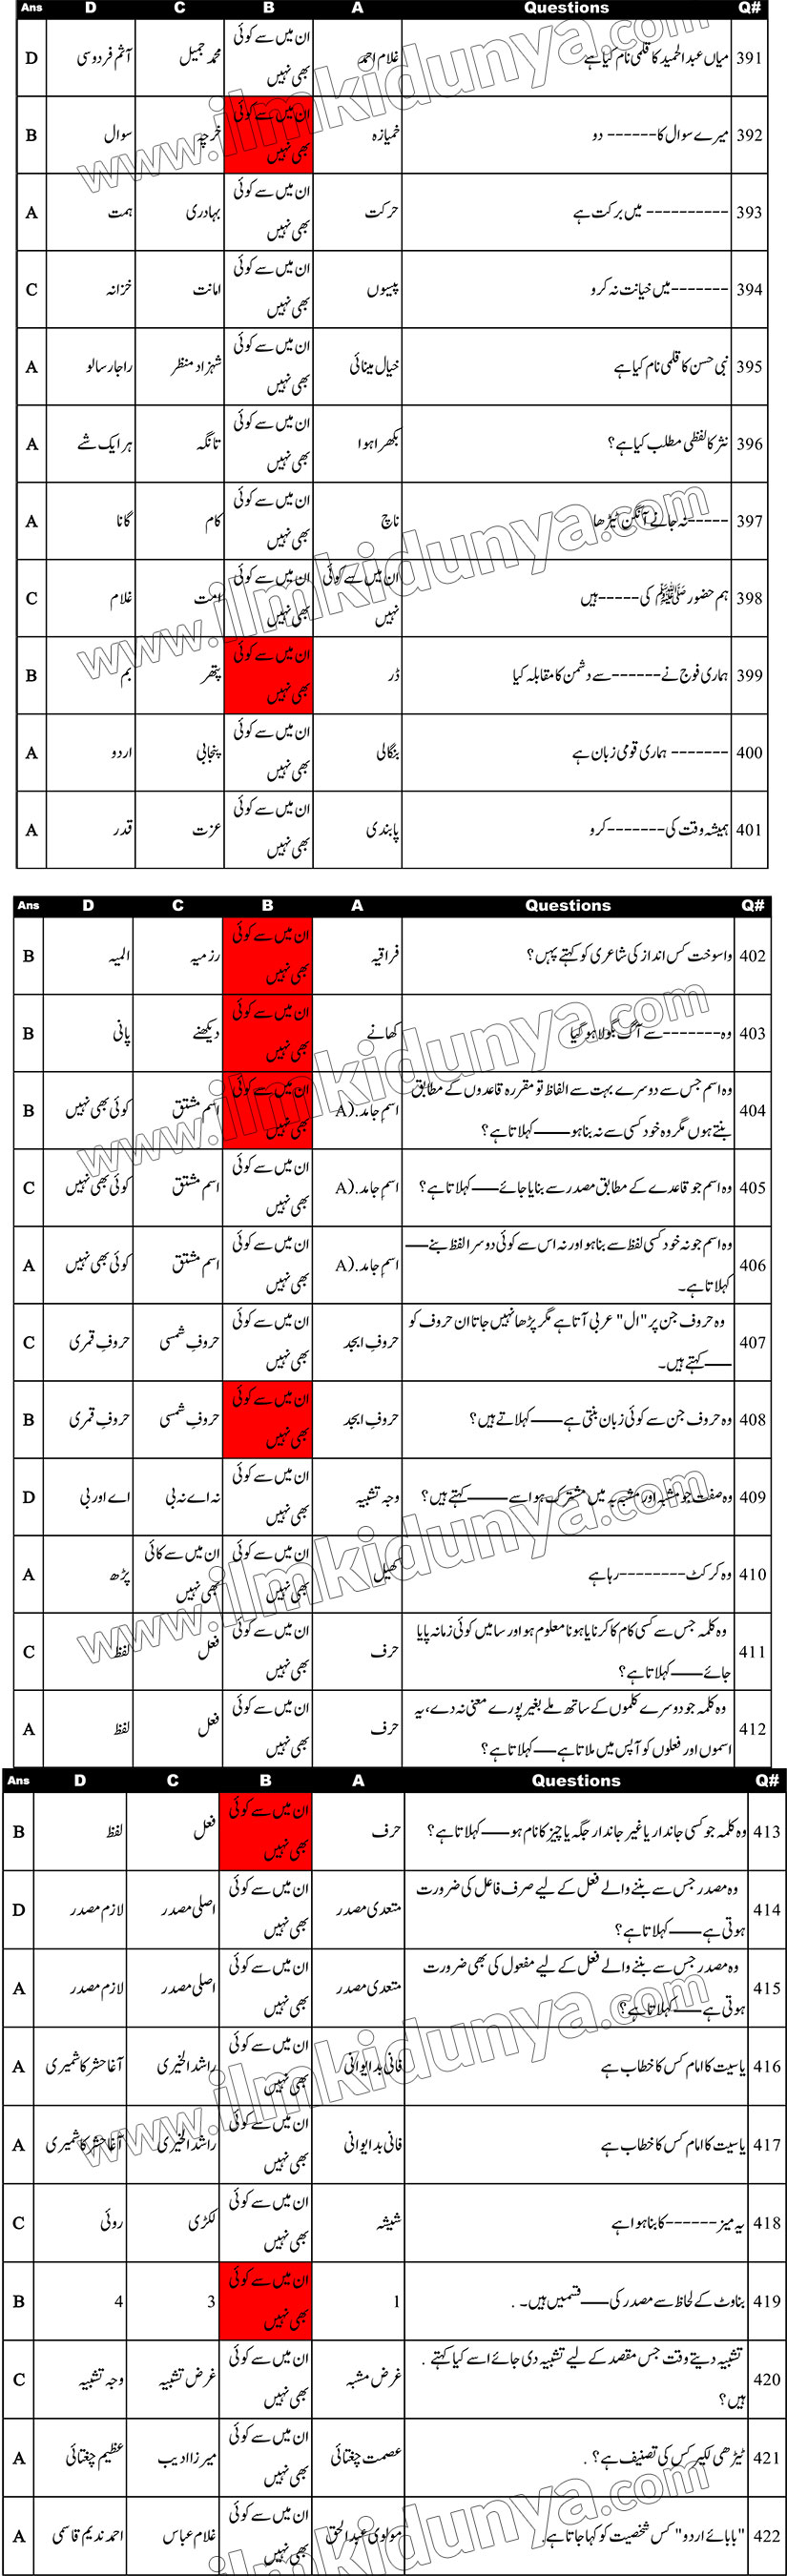 Q# Questions A B C D Ans
391 میاں عبدالحمید کا قلمی نام کیا ہے غلام احمد ان میں سے کوئی بھی نہیں محمد جمیل آثم فردوسی D
392 میرے سوال کا------ دو خمیازہ ان میں سے کوئی بھی نہیں خرچہ سوال B
393 ---------- میں برکت ہے حرکت ان میں سے کوئی بھی نہیں بہادری ہمت A
394 -------میں خیانت نہ کرو پیسوں ان میں سے کوئی بھی نہیں امانت خزانہ C
395 نبی حسن کا قلمی نام کیا ہے خیال مینائی ان میں سے کوئی بھی نہیں شہزاد منظر راجا رسالو A
396 نثر کا لفظی مطلب کیا ہے؟ بکھرا ہوا ان میں سے کوئی بھی نہیں تانگہ ہر ایک شے A
397 -----نہ جانے آنگن ٹیڑھا ناچ ان میں سے کوئی بھی نہیں کام گانا A
398 ہم حضور ﷺ کی-----ہیں ان میں سے کوئی نہیں ان میں سے کوئی بھی نہیں امت غلام C
399 ہماری فوج نے------سے دشمن کا مقابلہ کیا ڈر ان میں سے کوئی بھی نہیں پتھر بم B
400 ------- ہماری قومی زبان ہے بنگالی ان میں سے کوئی بھی نہیں پنجابی اردو A
401 ہمیشہ وقت کی-------کرو پابندی ان میں سے کوئی بھی نہیں عزت قدر A
Q# Questions A B C D Ans
402 واسوخت کس انداز کی شاعری کو کہتے پہں؟ فراقیہ ان میں سے کوئی بھی نہیں رزمیہ المیہ B
403 وہ-------سے آگ بگولا ہو گیا کھانے ان میں سے کوئی بھی نہیں دیکھنے پانی B
404 وہ اسم جس سے دوسرے بہت سے الفاظ تو مقررہ قاعدوں کے مطابق
بنتے ہوں مگر وہ خود کسی سے نہ بنا ہو ___ کہلاتا ہے؟ اسم جامد.(A ان میں سے کوئی بھی نہیں اسم مشتق کوئی بھی نہیں B
405 وہ اسم جو قاعدے کے مطابق مصدر سے بنایا جائے ___ کہلاتا ہے؟ اسم جامد.(A ان میں سے کوئی بھی نہیں اسم مشتق کوئی بھی نہیں C
406 وہ اسم جو نہ خود کسی لفظ سے بنا ہو اور نہ اس سے کوئی دوسرا لفظ بنے ___
کہلاتا ہے۔ اسم جامد.(A ان میں سے کوئی بھی نہیں اسم مشتق کوئی بھی نہیں A
407 وہ حروف جن پر "ال" عربی آتا ہے مگر پڑھا نہیں جاتا ان حروف کو
___ کہتے ہیں۔ حروفِ ابجد ان میں سے کوئی بھی نہیں حروفِ شمسی حروفِ قمری C
408 وہ حروف جن سے کوئی زبان بنتی ہے ___ کہلاتے ہیں؟ حروفِ ابجد ان میں سے کوئی بھی نہیں حروفِ شمسی حروفِ قمری B
409 وہ صفت جو مشبہ اور مشبہ بہ میں مشترک ہو اسے ___ کہتے ہیں؟ وجہ تشبیہ ان میں سے کوئی بھی نہیں نہ اے نہ بی اے اور بی D
410 وہ کرکٹ--------رہا ہے کھیل ان میں سے کوئی بھی نہیں ان میں سے کائی بھی نہیں پڑھ A
411 وہ کلمہ جس سے کسی کام کا کرنا یا ہونا معلوم ہو اور سا میں کوئی زمانہ پایا
جائے ___ کہلاتا ہے؟ حرف ان میں سے کوئی بھی نہیں فعل لفظ C
412 وہ کلمہ جو دوسرے کلموں کے ساتھ ملے بغیر پورے معنی نہ دے، یہ
اسموں اور فعلوں کو آپس میں ملاتا ہے ___ کہلاتا ہے؟ حرف ان میں سے کوئی بھی نہیں فعل لفظ A
Q# Questions A B C D Ans
413 وہ کلمہ جو کسی جاندار یا غیر جاندار جگہ یا چیز کا نام ہو ___ کہلاتا ہے؟ حرف ان میں سے کوئی بھی نہیں فعل لفظ B
414 وہ مصدر جس سے بننے والے فعل کے لیے صرف فاعل کی ضرورت
ہوتی ہے ___ کہلاتا ہے؟ متعدی مصدر ان میں سے کوئی بھی نہیں اصلی مصدر لازم مصدر D
415 وہ مصدر جس سے بننے والے فعل کے لیے مفعول کی بھی ضرورت
ہوتی ہے ___ کہلاتا ہے؟ متعدی مصدر ان میں سے کوئی بھی نہیں اصلی مصدر لازم مصدر A
416 یاسیت کا امام کس کا خطاب ہے فانی بدایوانی ان میں سے کوئی بھی نہیں راشد الخیری آغا حشر کاشمیری A
417 یاسیت کا امام کس کا خطاب ہے فانی بدایوانی ان میں سے کوئی بھی نہیں راشد الخیری آغا حشر کاشمیری A
418 یہ میز------کا بنا ہوا ہے شیشہ ان میں سے کوئی بھی نہیں لکڑی روئی C
419 بناوٹ کے لحاظ سے مصدر کی ___ قسمیں ہیں۔ . 1 ان میں سے کوئی بھی نہیں 3 4 B
420 تشبیہ دیتے وقت جس مقصد کے لیے تشبیہ دی جائے اسے کیا کہتے .
ہیں؟ غرض مشبہ ان میں سے کوئی بھی نہیں غرض تشبیہ وجہ تشبیہ C
421 ٹیڑھی لکیر کس کی تصنیف ہے؟ . عصمت چغتائی ان میں سے کوئی بھی نہیں میرزا ادیب عظیم چغتائی A
422 "بابائے اردو" کس شخصیت کو کہا جاتا ہے. مولوی عبدالحق ان میں سے کوئی بھی نہیں غلام عباس احمد ندیم قاسمی A
www.ilmkidunya.com
www.ilmkidunya.com
www.ilmkidunya.com
www.ilmkidunya.com
www.ilmkidunya.com
www.ilmkidunya.com